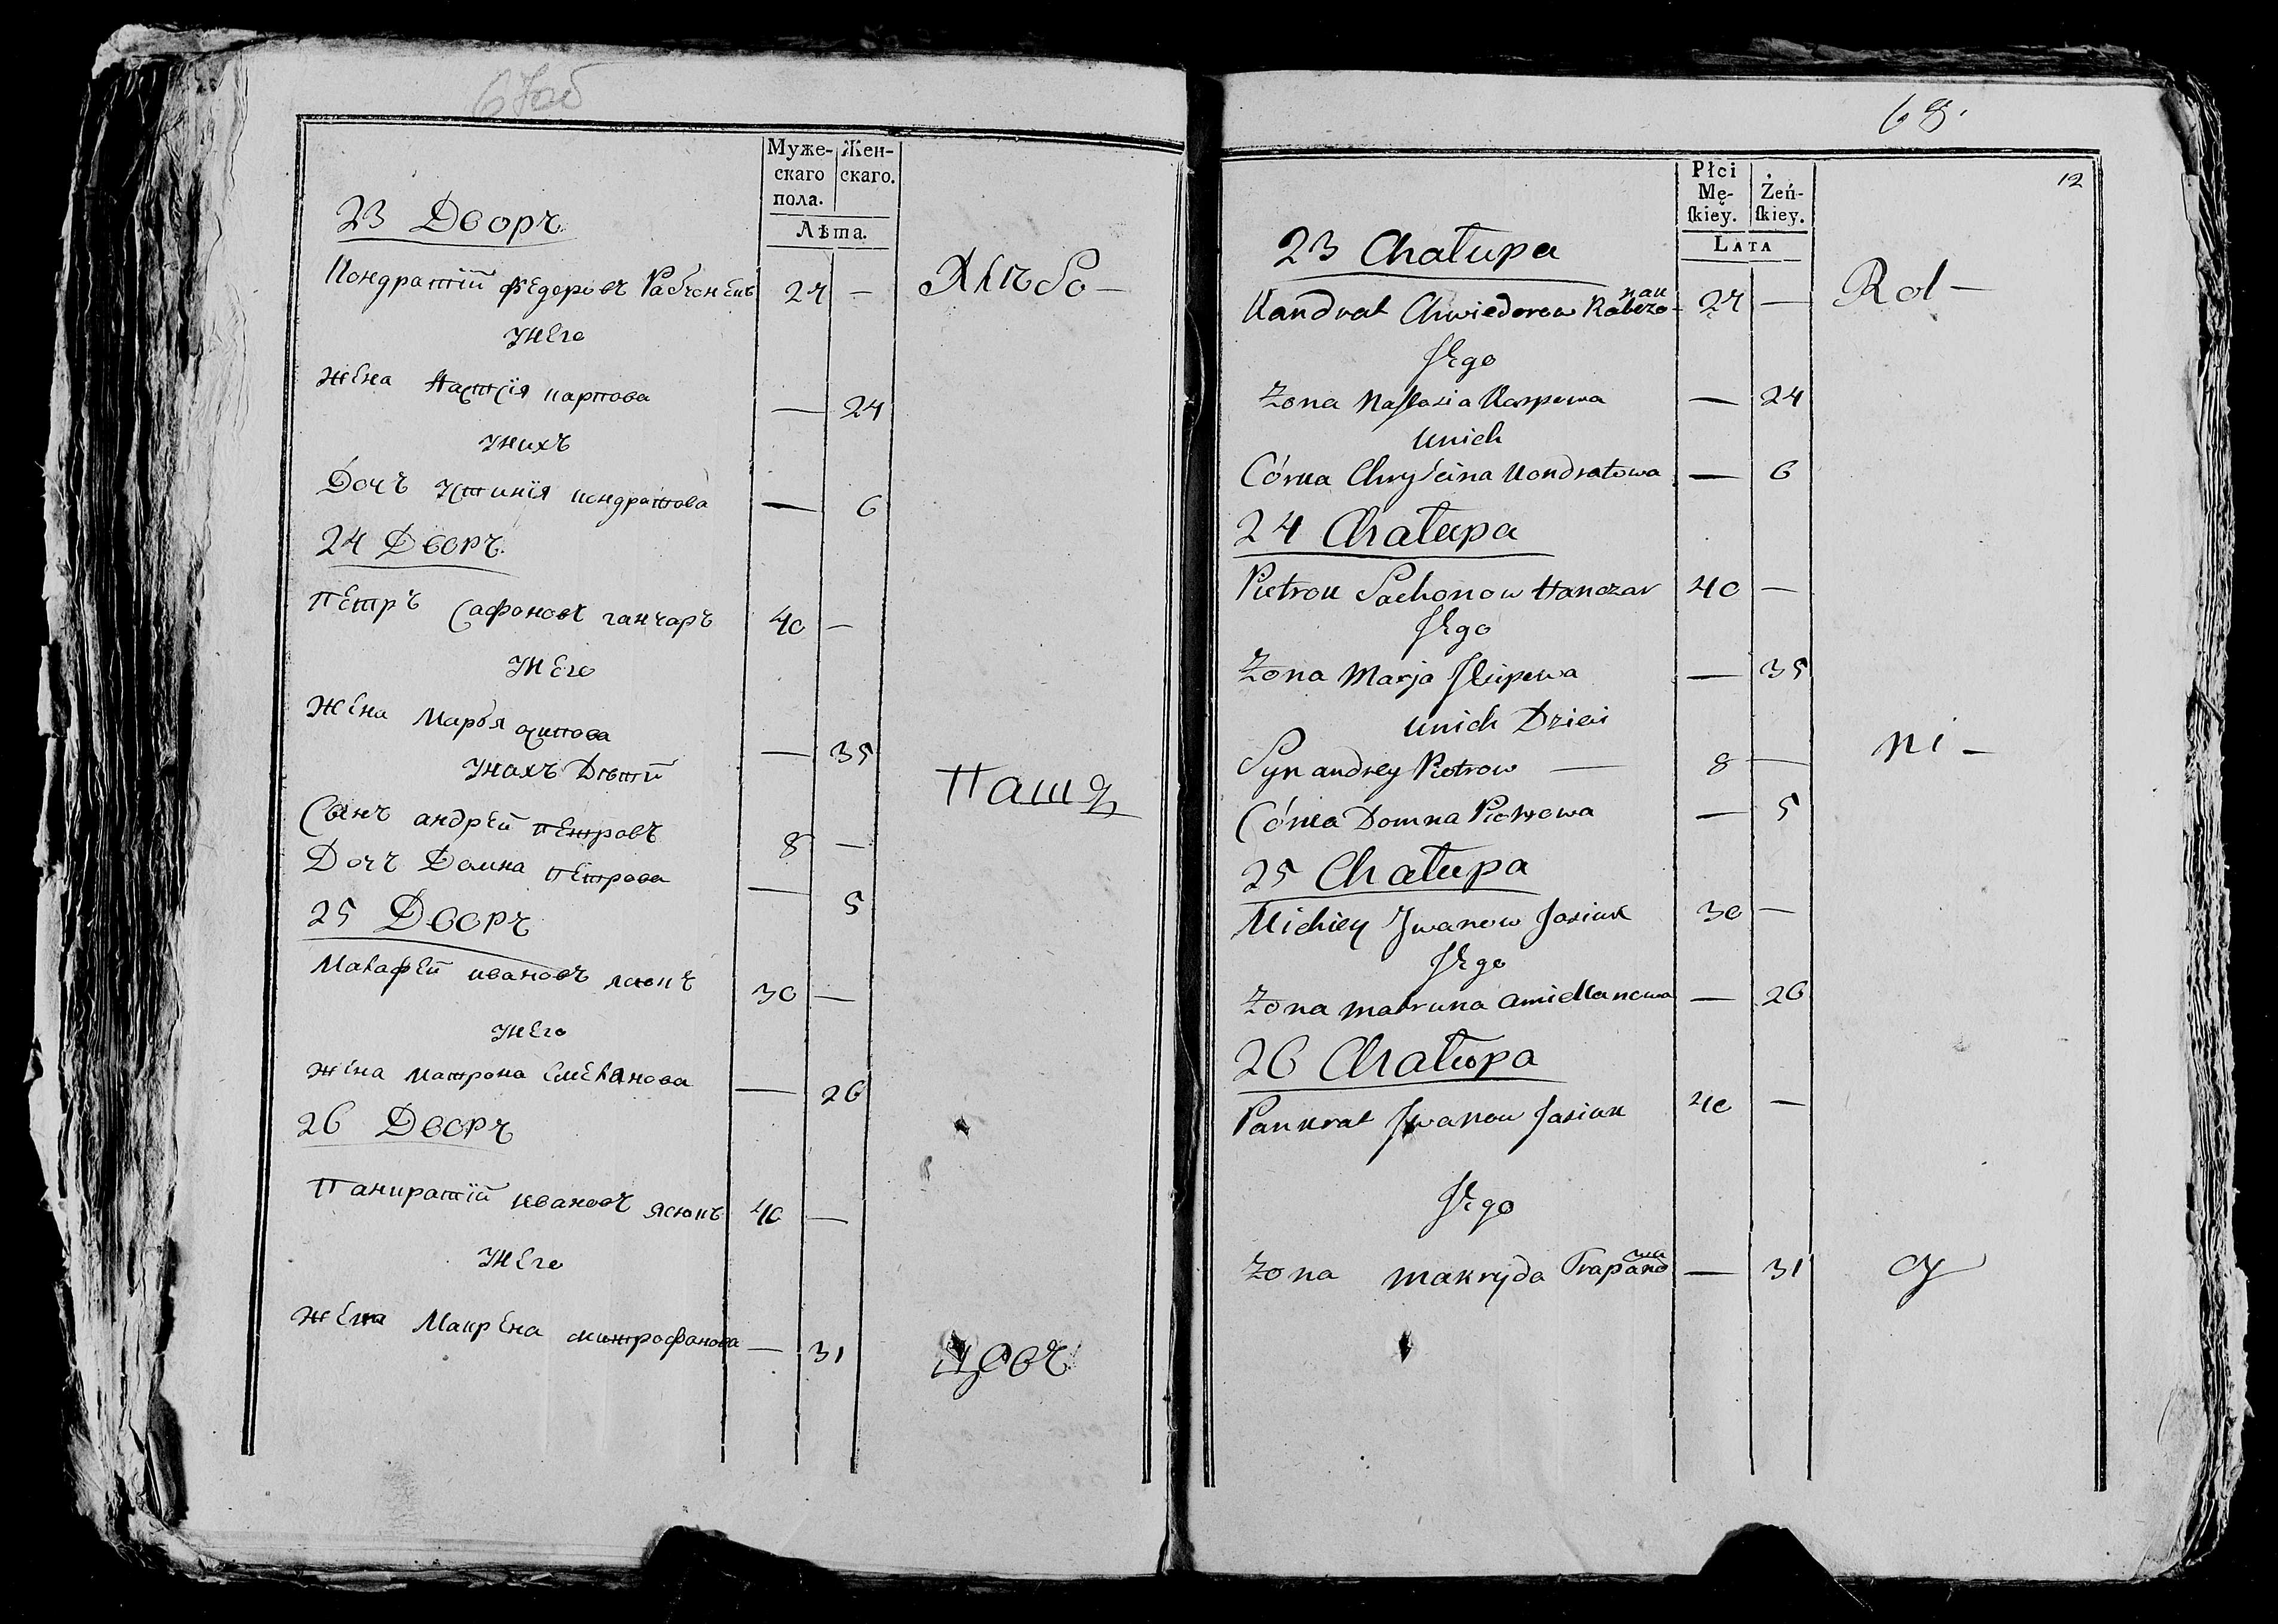 67об
Муже- Жен-
скаго скаго.
пола.
Лѣта.
23 Дворъ
Кондратій Федоровъ Рабченекъ 24 — Хлѣбо-
Унего
Жена Настасія карпова — 24
Унихъ
Дочъ Устинія кондратова — 6
24 Дворъ
Петръ Сафоновъ ганчаръ 40 —
Унего
Жена Марья осипова — 35
Унихъ Дѣтй
Сынъ андрей петровъ 8 — Паш
Дочъ Домна петрова — 5
25 Дворъ
Макафей ивановъ ясюкъ 30 —
Унего
Жена матрона емельянова — 26
26 Дворъ
Панкратій ивановъ ясюкъ 40 —
Унего
Жена Макрена митрофанова — 31 цовъ
68.
12
Płci
Mę- Żeń-
ſkiey. ſkiey.
LATA
23 Chałupa
Kandrat Chwiedorow Rabczo- 24 — Rol-
nek
Jego
Żona Nastasia Karpowa — 24
Unich
Córka Chryścina Kondratowa — 6
24 Chałupa
Pietrok Sachonow Hanczar 40 —
Jego
Żona Marja Jsipowa — 35
Unich Dzieci
Syn andrey Pietrow — 8 — ni-
Córka Domna Piotrowa — 5
25 Chałupa
Michiey Jwanow Jasiuk 30 —
Jego
Żona matruna amiellanowa — 26
26 Chałupa
Pankrat Jwanow Jasiuk 40 —
Jego
Żona makryda Trapano — 31 cy
wa